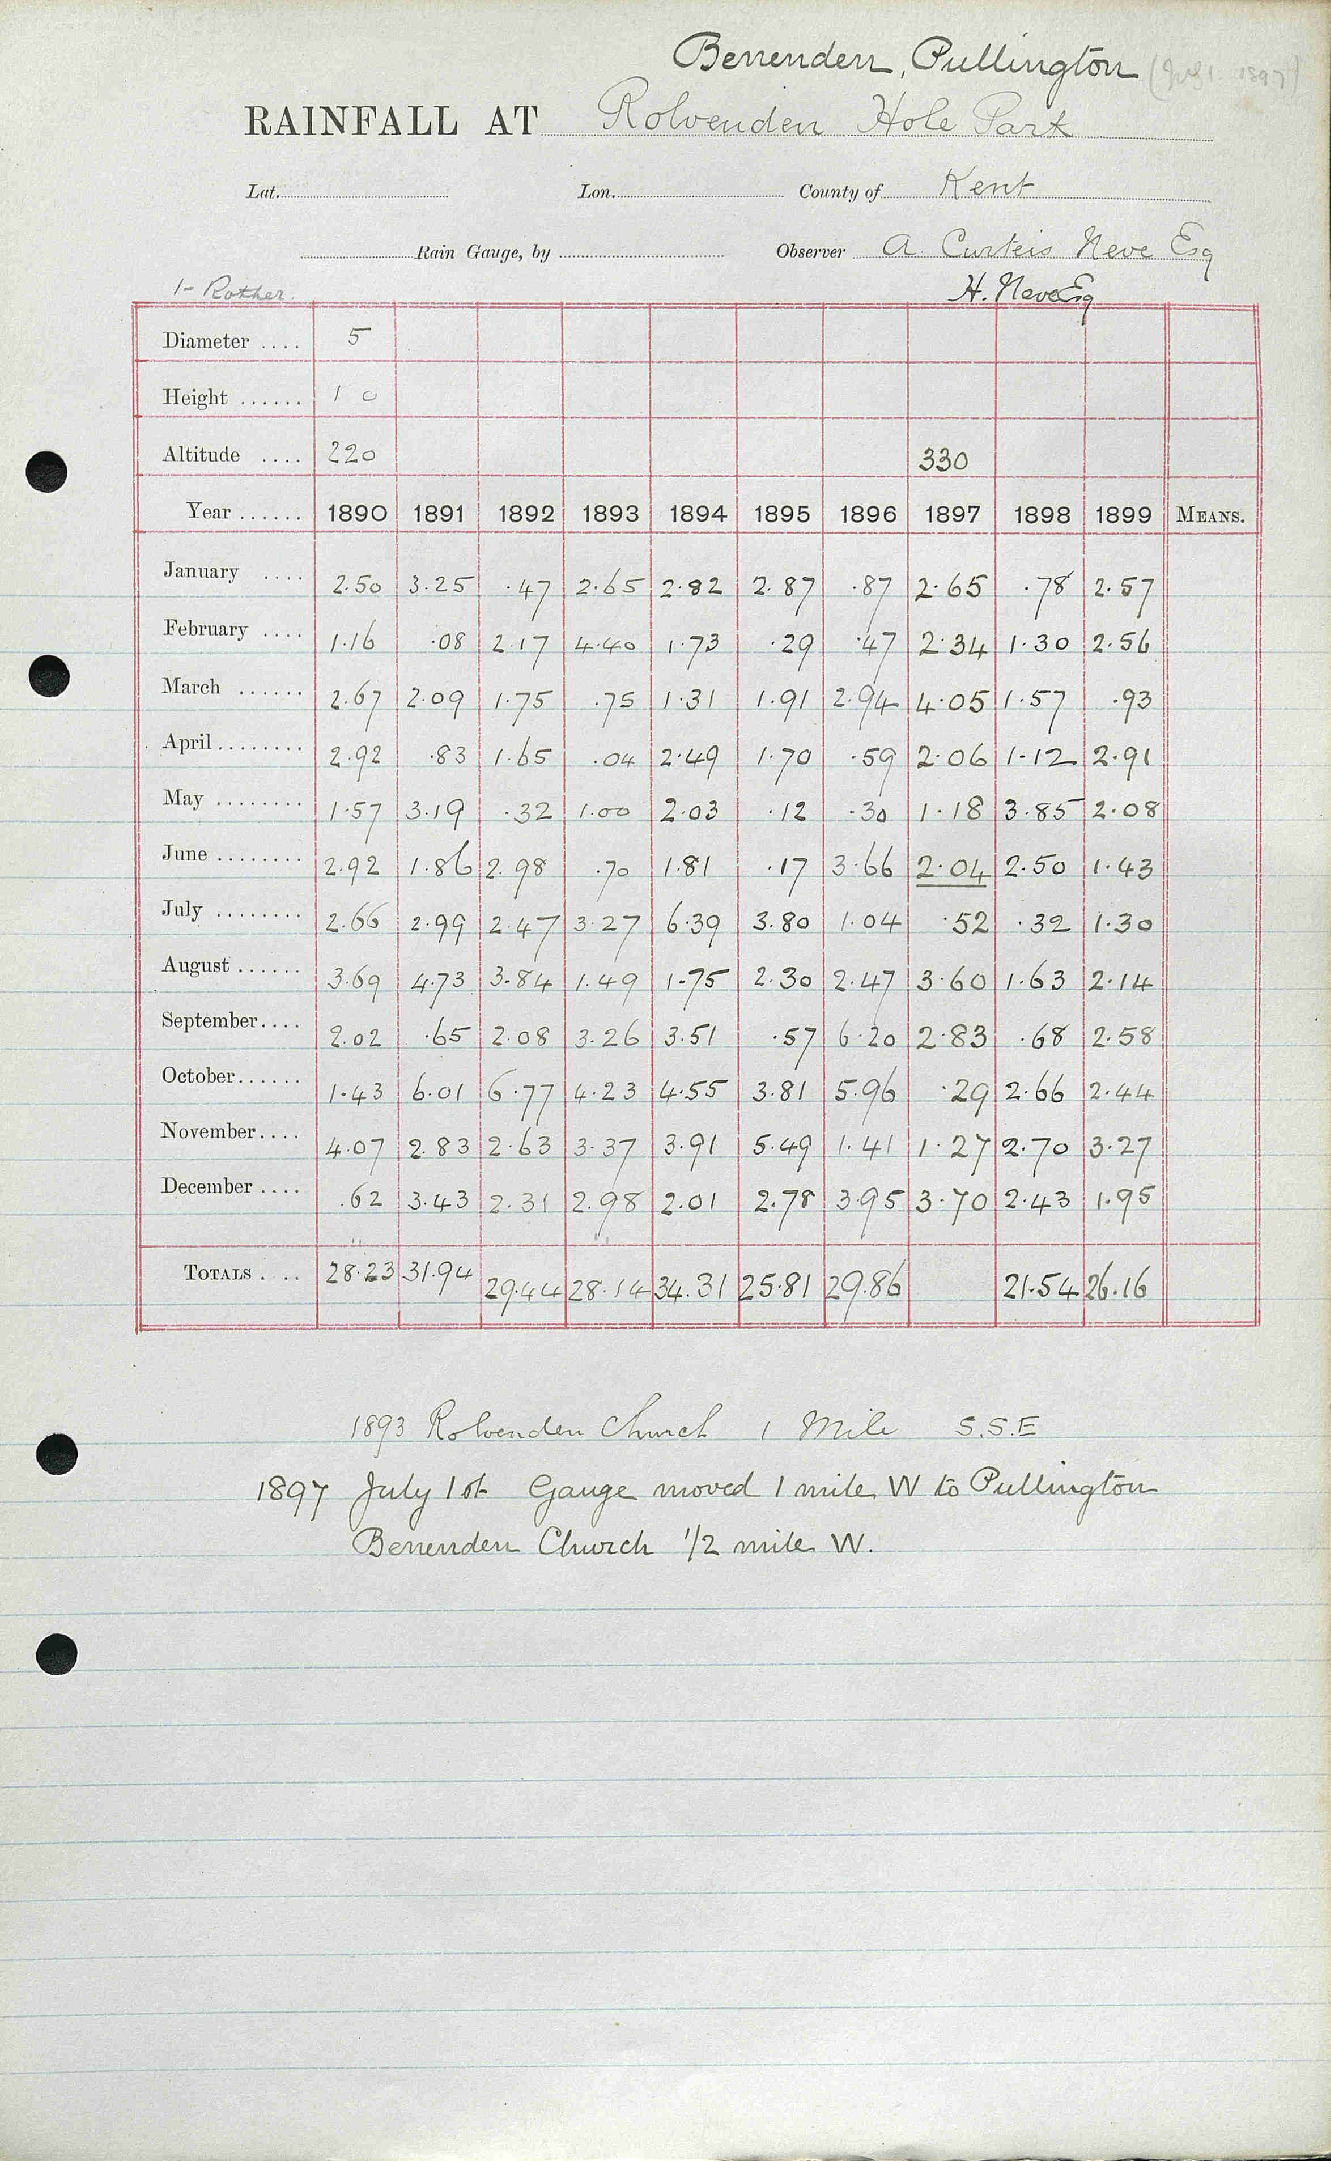 Benenden, Pullington (July 1. 1897)
RAINFALL AT Rolvenden Hole Park
Lat. Lon. County of Kent
Rain Gauge, by Observer A. Curteis Neve Esq
1- Rother. H. Neve Esq
Diameter .... 5
Height ...... 1 0
Altitude .... 220 330
Year ...... 1890 1891 1892 1893 1894 1895 1896 1897 1898 1899 MEANS.
January .... 2.50 3.25 .47 2.65 2.82 2.87 .87 2.65 .78 2.57
February .... 1.16 .08 2.17 4.40 1.73 .29 .47 2.34 1.30 2.56
March ...... 2.67 2.09 1.75 .75 1.31 1.91 2.94 4.05 1.57 .93
April ........ 2.92 .83 1.65 .04 2.49 1.70 .59 2.06 1.12 2.91
May ........ 1.57 3.19 .32 1.00 2.03 .12 .30 1.18 3.85 2.08
June ........ 2.92 1.86 2.98 .70 1.81 .17 3.66 2.04 2.50 1.43
July ........ 2.66 2.99 2.47 3.27 6.39 3.80 1.04 .52 .32 1.30
August ...... 3.69 4.73 3.84 1.49 1.75 2.30 2.47 3.60 1.63 2.14
September .... 2.02 .65 2.08 3.26 3.51 .57 6.20 2.83 .68 2.58
October ...... 1.43 6.01 6.77 4.23 4.55 3.81 5.96 .29 2.66 2.44
November .... 4.07 2.83 2.63 3.37 3.91 5.49 1.41 1.27 2.70 3.27
December .... .62 3.43 2.31 2.98 2.01 2.78 3.95 3.70 2.43 1.95
TOTALS .... 28.23 31.94 29.44 28.14 34.31 25.81 29.86 21.54 26.16
1893 Rolvenden Church 1 Mile S.S.E
1897 July 1st Gauge moved 1 mile W to Pullington
Benenden Church 1/2 mile W.